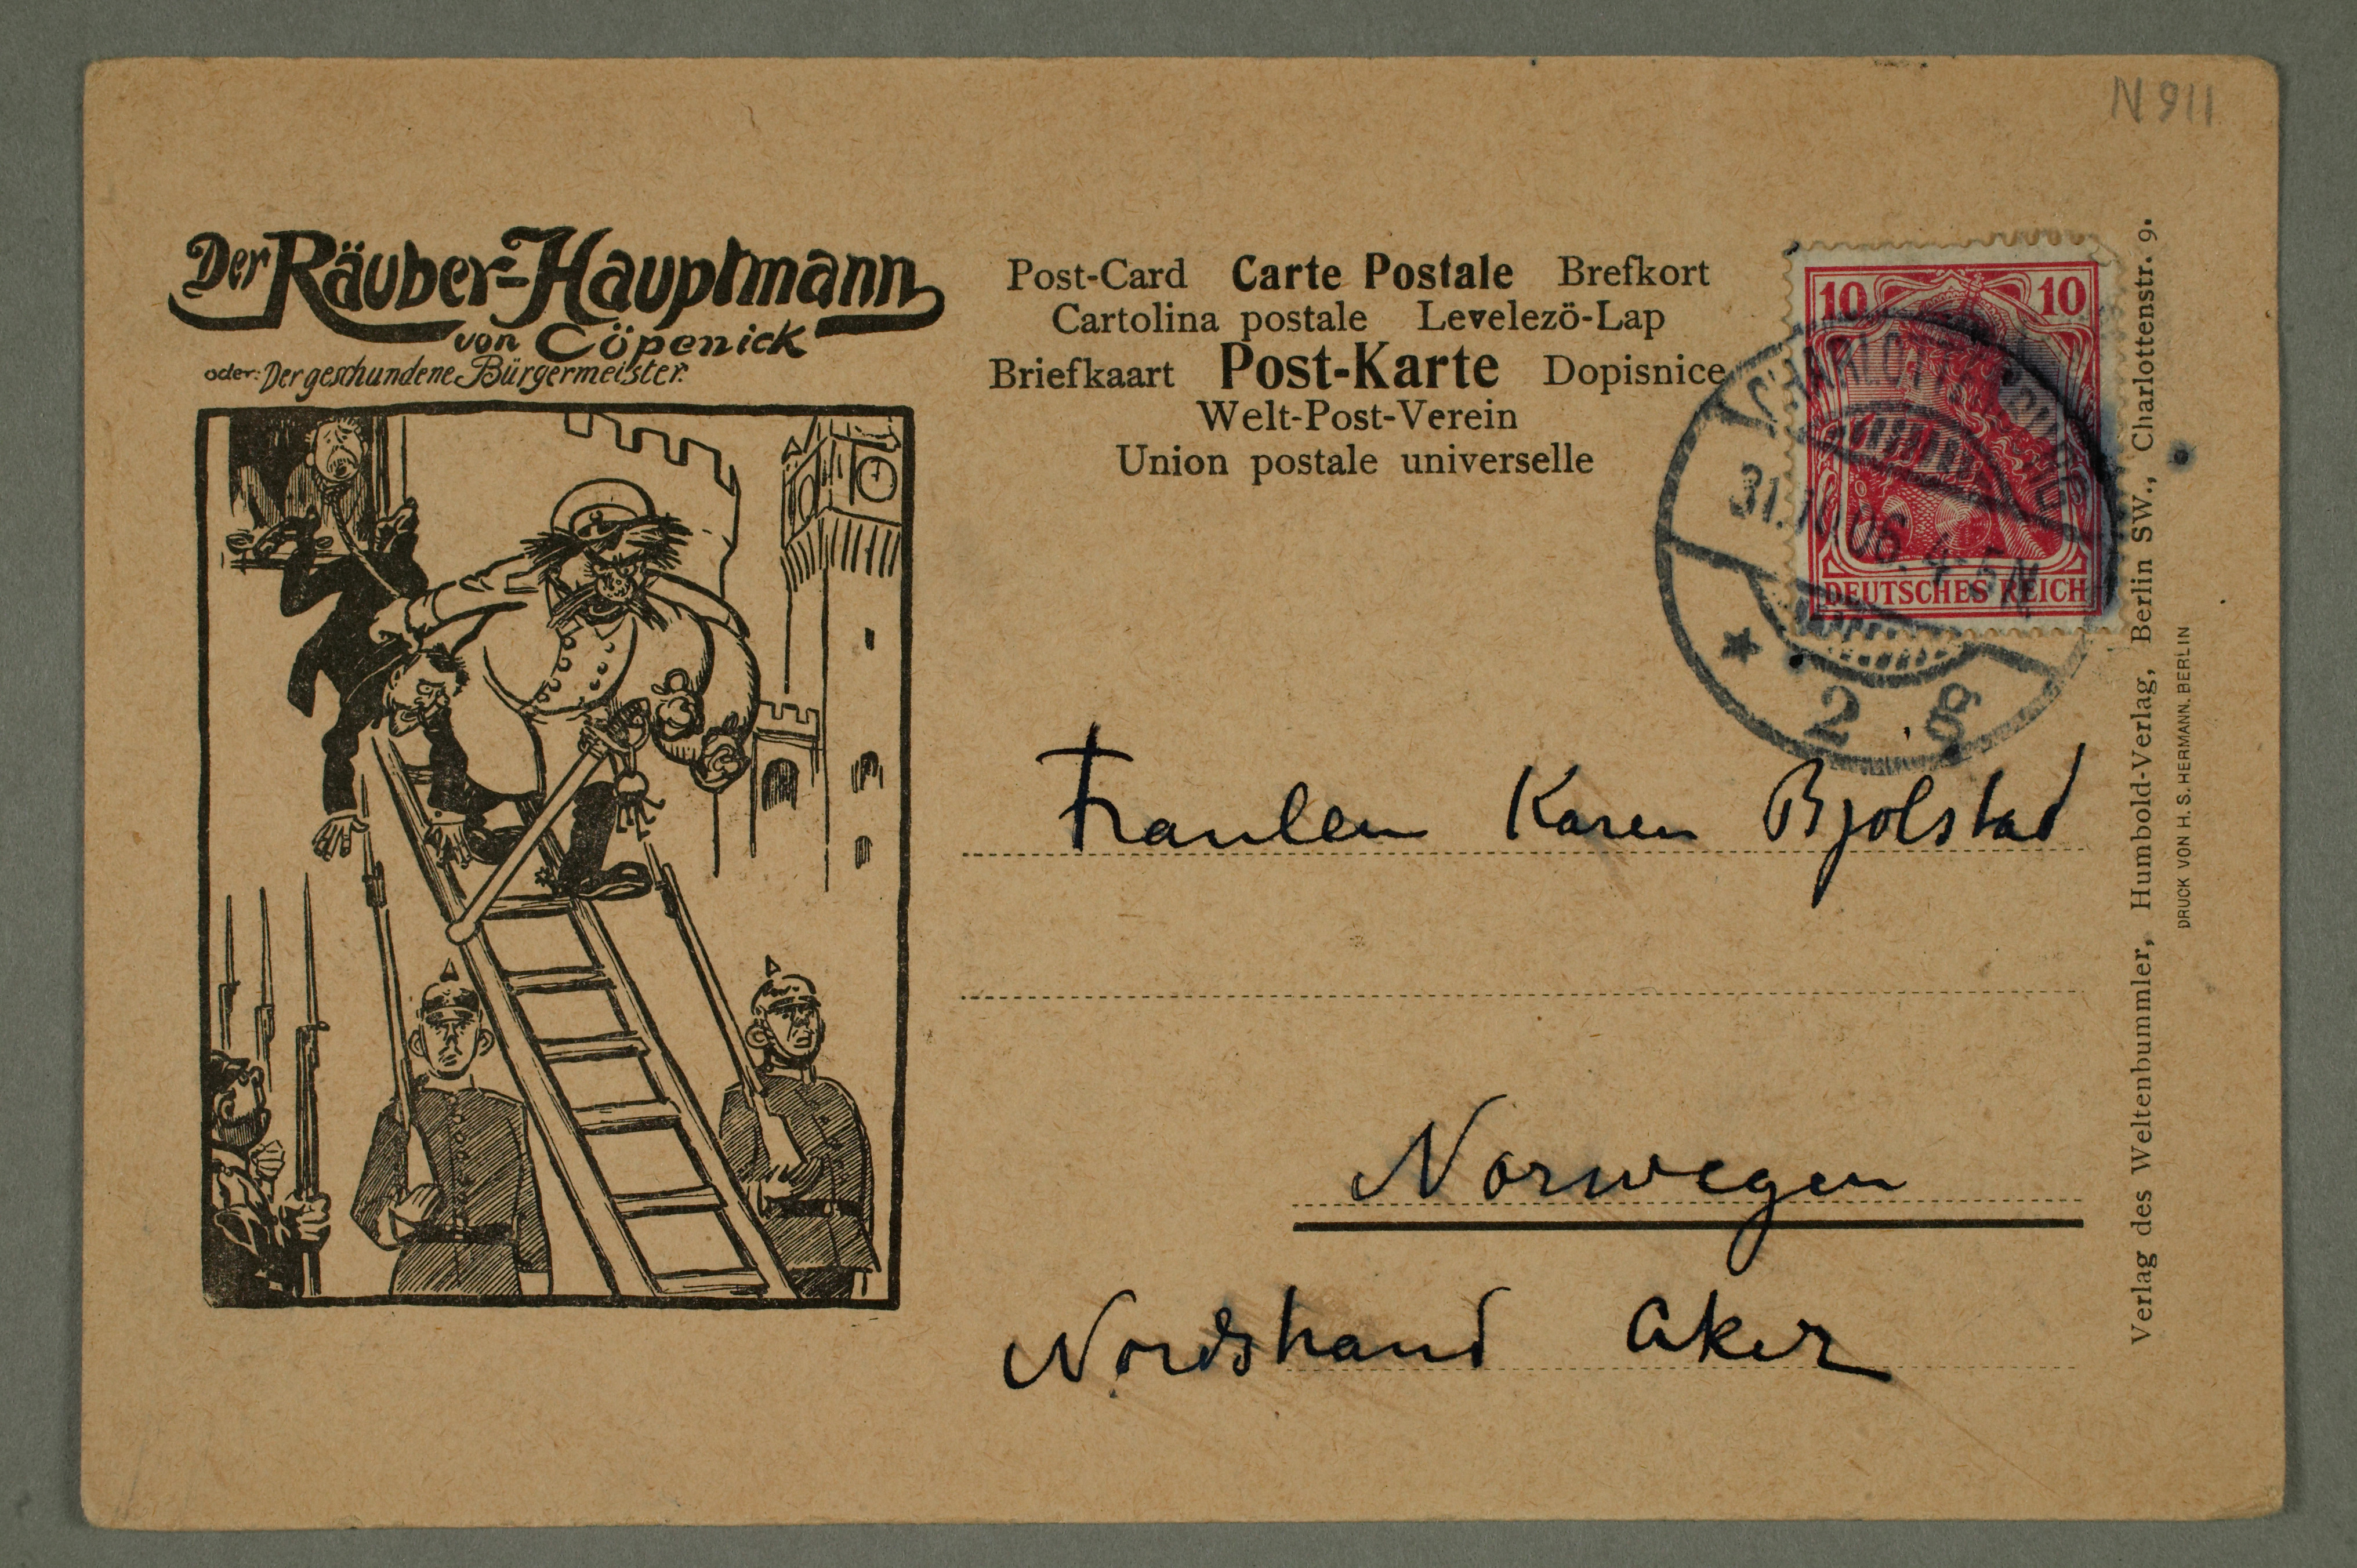 N 911
Der Räuber-Hauptmann
von Cöpenick
oder: Der geschundene Bürgermeister.
Post-Card Carte Postale Brefkort
Cartolina postale Levelezö-Lap
Briefkaart Post-Karte Dopisnice
Welt-Post-Verein
Union postale universelle
10 10
DEUTSCHES REICH
CHARLOTTENBURG
31.10.06. 4-5N
* 2 g
Fraulein Karen Bjølstad
Norwegen
Nordstrand Aker
Verlag des Weltenbummler, Humbold-Verlag, Berlin SW., Charlottenstr. 9.
DRUCK VON H. S. HERMANN, BERLIN